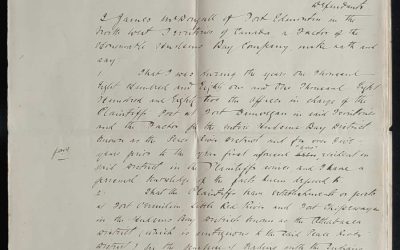 Defendants
I James McDougall of Fort Edmonton in the
North West Territories of Canada a Factor of the
Honourable Hudsons Bay Company make oath and
say
1. That I was during the years One Thousand
Eight Hundred and Eighty one and One Thousand Eight
Hundred and Eighty two the officer in charge of the
Plaintiffs Post at Fort Dunvegan in said Territories
and the Factor for the entire Hudsons Bay District
known as the Peace River District and for over five
years prior to the years first aforesaid resident in
said District in the Plaintiffs and I have a
personal knowledge of the facts herein deposed to
2. That the Plaintiffs have establishments or posts
at Fort Vermilion Little Red River and Fort Chipewayan
in the Hudsons Bay District known as the Athabasca
District, which is contiguous to the said Peace River
District, for the purpose of trading with the Indians